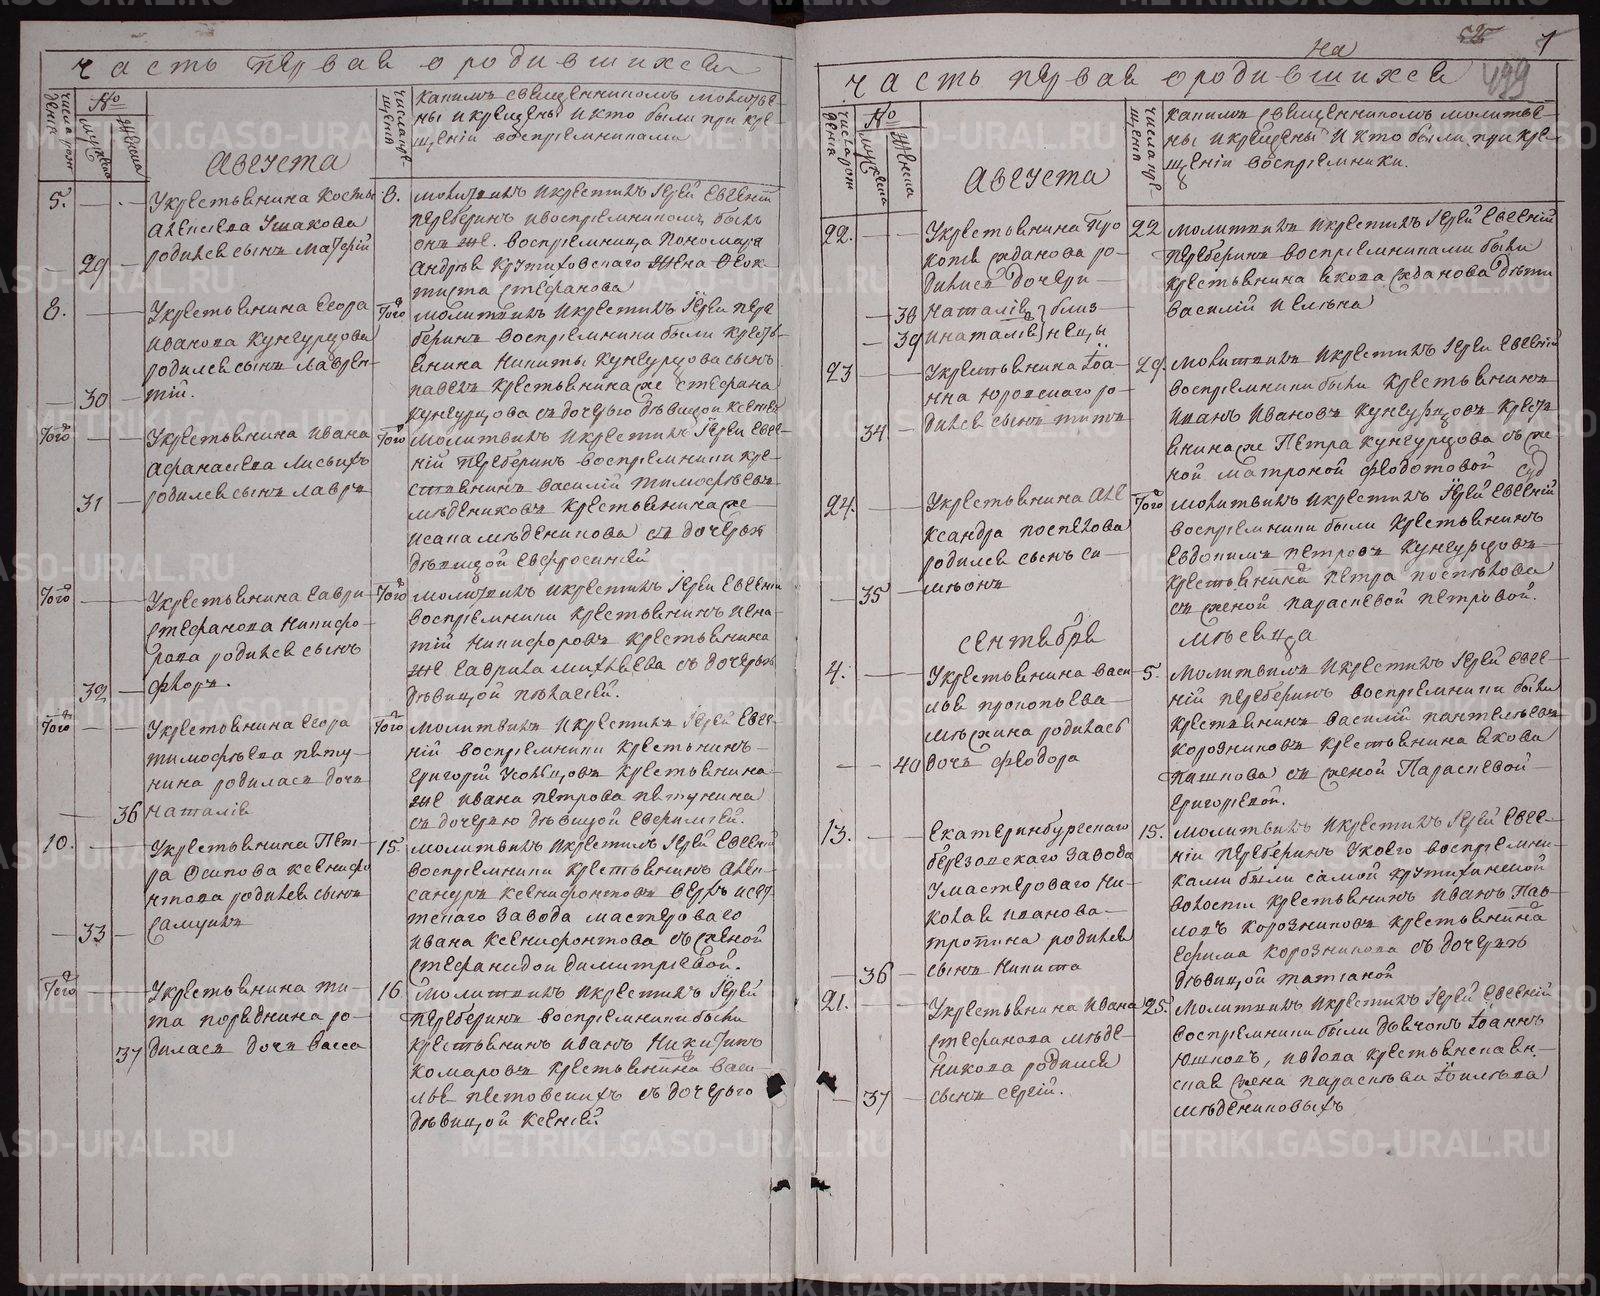 часть первая о родившихся
числа рождения
№
мужеска
женска
Августа
числа крещения
каким священником молитве-
ны и крещены и кто были при кре-
щении восприемниками
5.
29
У крестьянина Косты
Алексеева Ушакова
родился сын Матфий
8.
молитвил и крестил Иерей Евгений
Переберин и восприемником был
он же. восприемница пономаря
Андрея Крутиховскаго жена Феок-
тиста Стефанова
8.
30
У крестьянина Егора
Иванова Кунгурцова
родился сын Лаврен-
тий.
Того
молитвил и крестил Иерей Пере
берин восприемники были крестья-
янина Никиты Кунгурцова сын
Павел крестьянина же Стефана
Кунгурцова с дочерью девицой Ксение
Того
31
У крестьянина Ивана
Афанасьева Лисьих
родился сын Лавр
Того
молитвил и крестил Иерей Евге-
ний Переберин восприемники кре-
стьянин Василий Тимофеев
Медников крестьянина же
Исака Меденикова с дочерью
девицой Евфросинией
Того
32
У крестьянина Гаври
Стефанова Никифо-
рова родился сын
Флор.
Того
молитвил и крестил Иерей Евгений
восприемники крестьянин Игна
тий Никифоров крестьянина
же Гаврила Михеева с дочерью
девицой Пелагией.
Того
36
У крестьянина Егора
Тимофеева Пету-
нина родилась дочь
Наталия
Того
молитвил и крестил Иерей Евге-
ний восприемники крестьянин
Григорий Усольцов крестьянина
же Ивана Петрова Петунина
с дочерью девицой Евфимией.
10.
33
У крестьянина Пет-
ра Осипова Ксенифо
нтова родился сын
Самуил
15.
молитвил и крестил Иерей Евгений
восприемники крестьянин Алек-
сандр Ксенифонтов Верх исет-
тскаго завода мастероваго
Ивана Ксенифонтова с женой
Стефанидой Димитриевой.
Того
37
У крестьянина Ти-
та Поряднина ро-
дилась дочь Васса
16
Молитвил и крестил Иерей
Переберин восприемники были
крестьянин Иван Никитин
Комаров крестьянина Васи-
лья Петовских с дочерью
девицой Ксенией.
на
52
1
499
часть первая о родившихся
числа рождения
№
мужеска
женска
Августа
числа крещения
каким священником молитве-
ны и крещены и кто были при кре-
щении восприемники.
22.
38
39
У крестьянина Про
копья Жданова ро-
дились дочери
Наталия } близ-
и Наталия } нецы
22
молитвил и крестил Иерей Евгений
Переберин восприемниками были
крестьянина Якова Жданова дети
Василий и Елена
23
34
У крестьянина Iоа-
нна Юровскаго ро-
дился сын Тит
29.
Молитвил и крестил Иерей Евгений
восприемники были крестьянин
Иван Иванов Кунгурцов кресть
янина же Петра Кунгурцова с же-
ной Матроной Федотовой
24.
35
У крестьянина Але
ксандра Поспелова
родился сын Си-
меон
Того
Молитвил и крестил Иерей Евгений
восприемники были крестьянин
Евдоким Петров Кунгурцов
крестьянина Петра Поспелова
с женой Параскевой Петровой.
Сентября
месяца
4.
40
У крестьянина Васи
лья Прокопьева
Межина родилась
дочь Феодора
5.
Молитвил и крестил Иерей Евге-
ний Переберин восприемники были
крестьянин Василий Пантелеев
Корозников крестьянина Якова
Пашкова с женой Параскевой
Григорьевой.
13.
36
Екатеринбургскаго
Березовскаго завода
У мастероваго Ни-
колая Иванова
Тропина родился
сын Никита
15.
Молитвил и крестил Иерей Евге-
ний Переберин у коего восприемни-
ками были самой Крутихинской
волости крестьянин Иван Пав-
лов Корозников крестьянина
Ефима Корозникова с дочерью
девицой Татианой
21.
37
У крестьянина Ивана
Стефанова Меде-
никова родился
сын Сергий.
25.
Молитвил и крестил Иерей Евгений
восприемники были дьячок Iоанн
Юшков, и вдова крестьянская
жена Параскева Iоилева
Медениковых